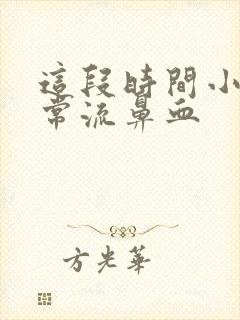 這段時間小
常流鼻血
方光華